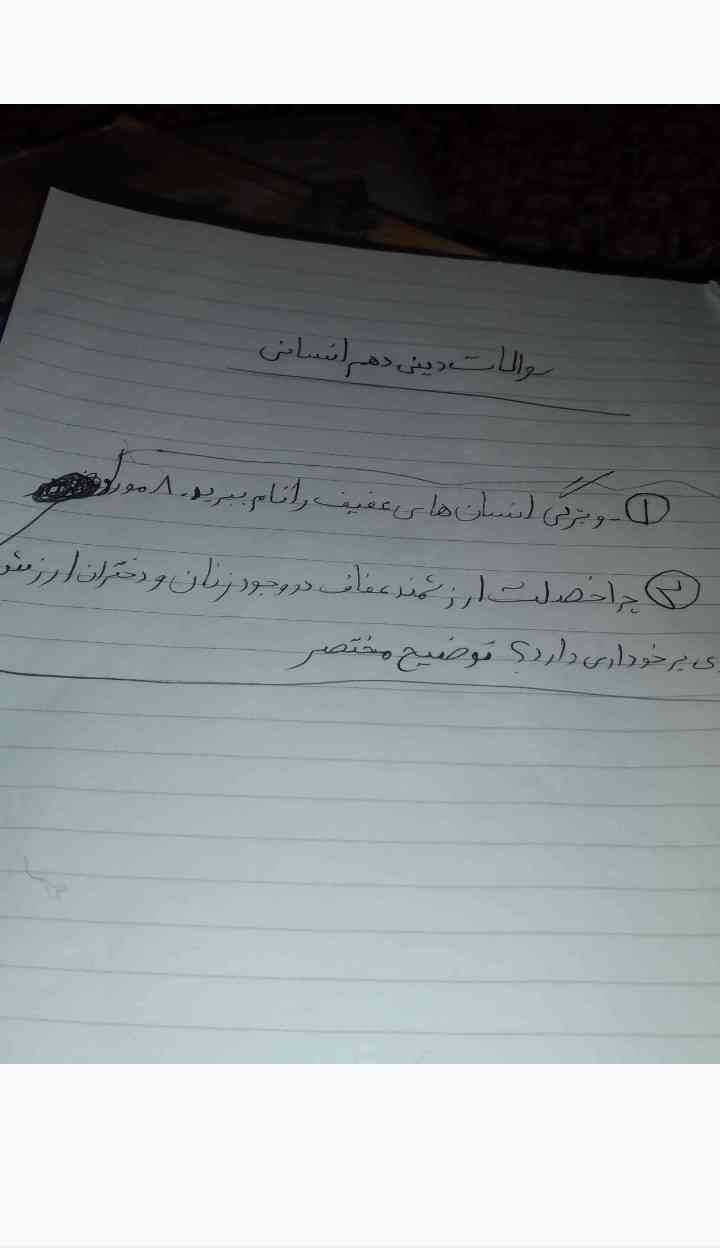 سوالات دینی دهم انسانی
① - ویژگی انسان های عفیف را نام ببرید. ۸ مورد
② چرا خصلت ارزشمند عفاف در وجود زنان و دختران ارزش
ی برخورداری دارد؟ توضیح مختصر